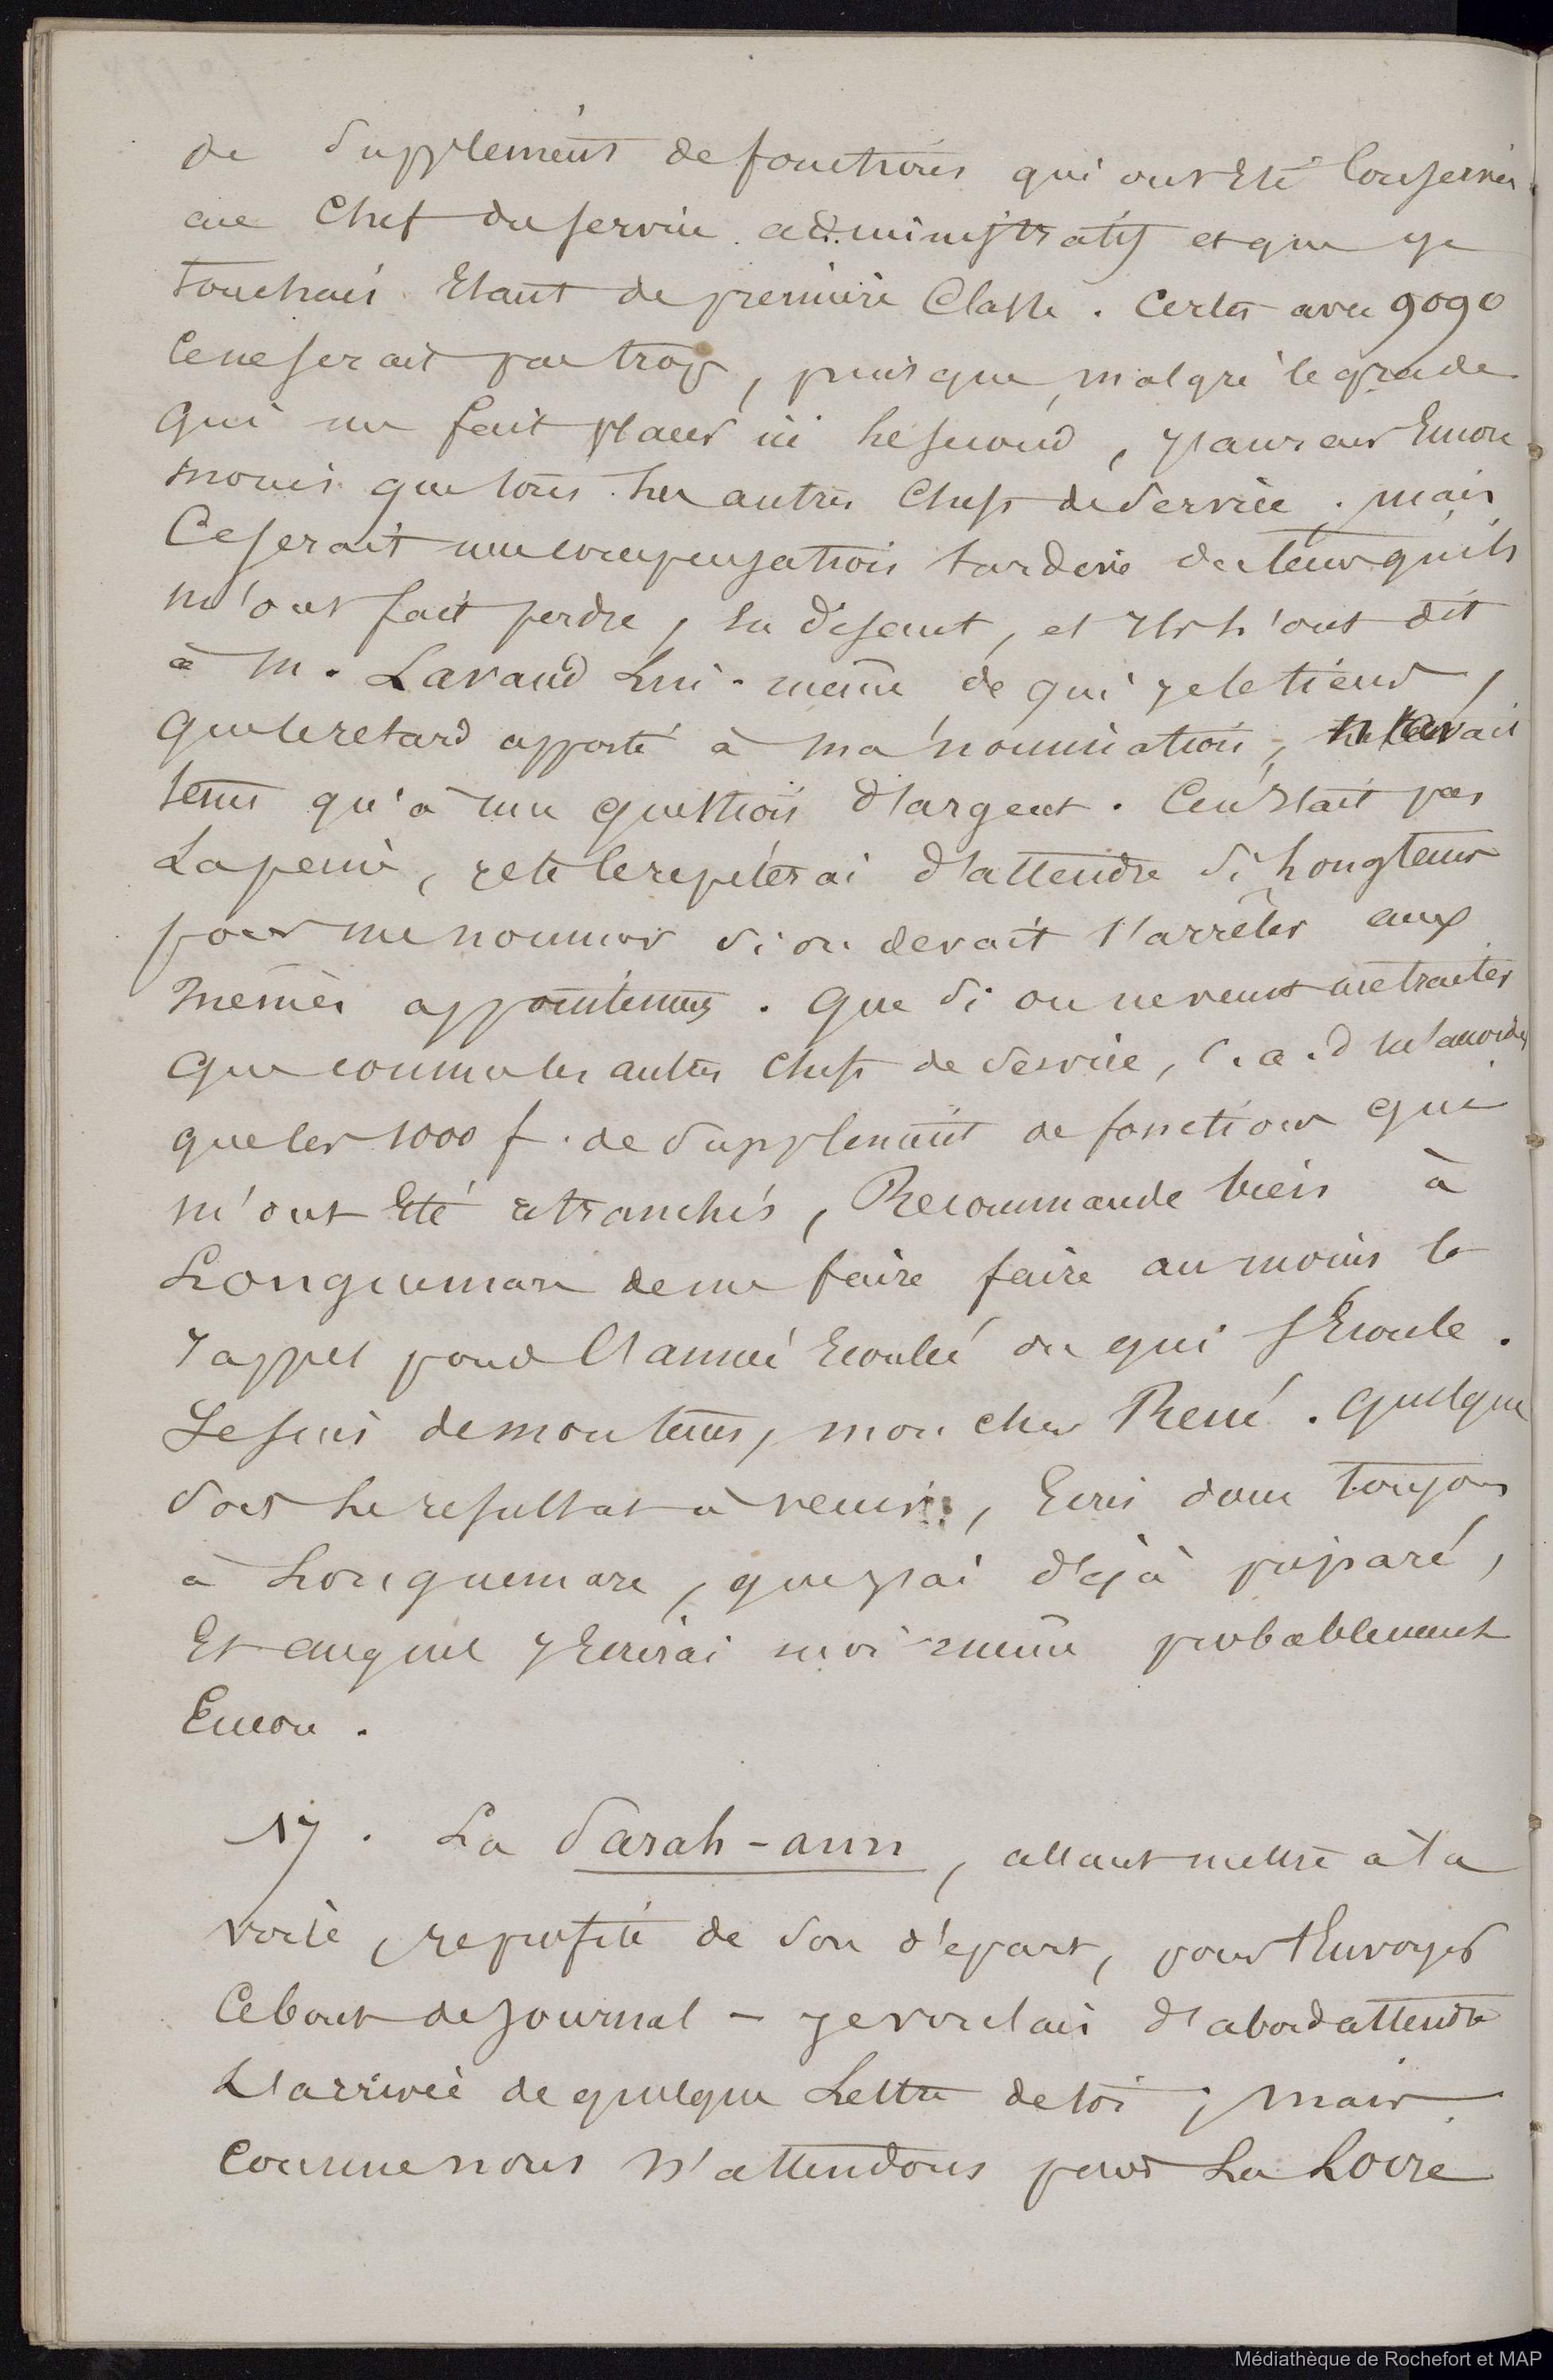 de supplements de fonctions qui ont été conservés
au chef du service administratif et que je
touchais étant de première classe. Certes avec 9090
ce ne serait pas trop, puisque, malgré le grade
qui me fait placer ici le second, j'aurais encore
moins que tous les autres chefs de service. mais
ce serait une compensation tardive du temps qu'ils
m'ont fait perdre, en disant, et ils l'ont dit
à M. Lavaud lui-même de qui je le tiens,
que le retard apporté à ma nomination, n'avait
tenu qu'à une question d'argent. Ce n'était pas
la peine, je te le repéterai d'attendre si longtems
pour me nommer si on devait s'arrêter aux
mêmes appointemens. Que si on ne veut me traiter
que comme les autres chefs de service, c.a.d m'accorder
que les 1000 f. de supplement de fonctions qui
m'ont été retranchés, Recommande bien à
Longuemare de me faire faire au moins le
rappel pour l'année écoulée ou qui s'écoule.
Je suis de mon tems, mon cher René. Quelque
soit le resultat à venir, écris donc toujours
à Longuemare, que j'ai déjà préparé,
Et auquel j'écrirai moi même probablement
Encore.
17. La Sarah-ann, allant mettre à la
voile, je profite de son départ, pour t'envoyer
ce bout de journal – je voulais d'abord attendre
l'arrivée de quelque lettre de toi ; mais
comme nous n'attendons pas La Loire
Médiathèque de Rochefort et MAP